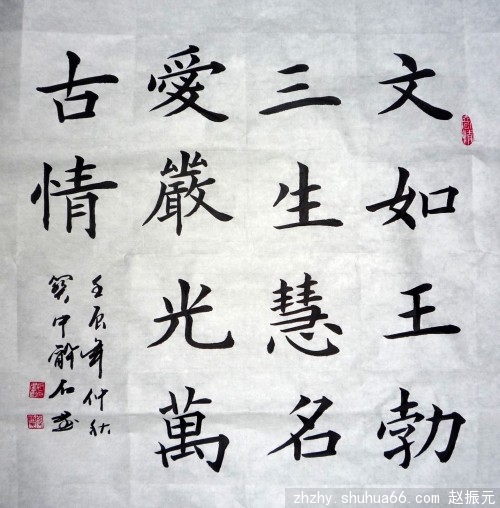 文如王勃
三生慧名
愛嚴光萬
古情
壬辰年仲秋
中石
zhzhy.shuhua66.com 赵振元